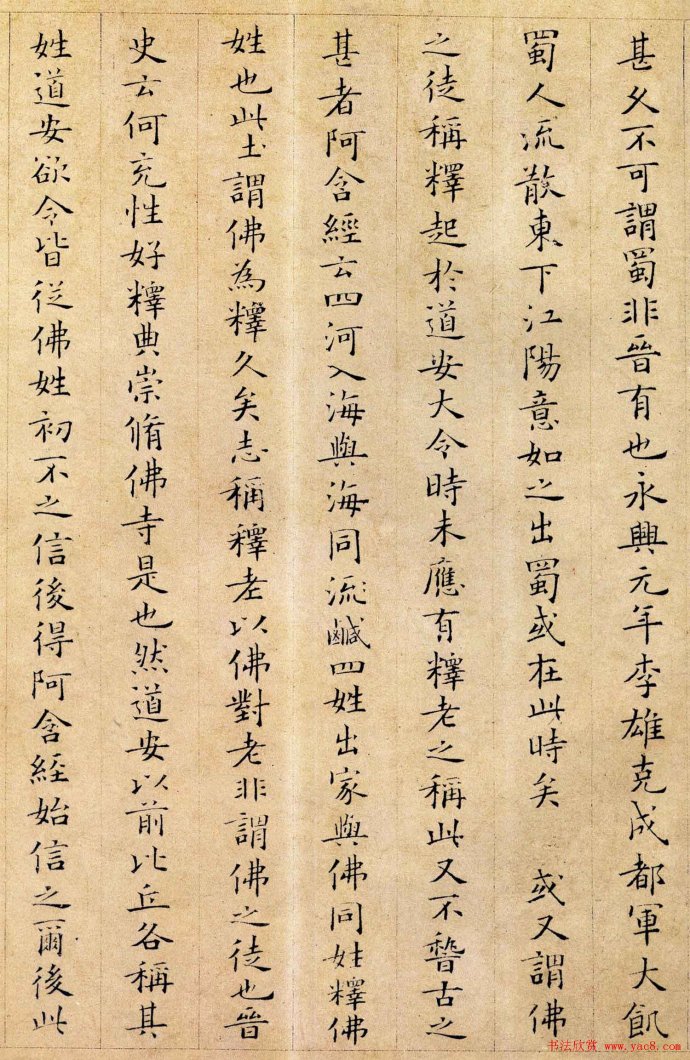 甚久不可謂蜀非晉有也永興元年李雄克成都軍大飢
蜀人流散東下江陽意如之出蜀或在此時矣　或又謂佛
之徒稱釋起於道安大令時未應有釋老之稱此又不稽古之
甚者阿含經云四河入海與海同流鹹四姓出家與佛同姓釋佛
姓也此土謂佛為釋久矣志稱釋老以佛對老非謂佛之徒也晉
史云何充性好釋典崇脩佛寺是也然道安以前比丘各稱其
姓道安欲令皆從佛姓初不之信後得阿含經始信之爾後此
书法欣赏 www.yac8.com